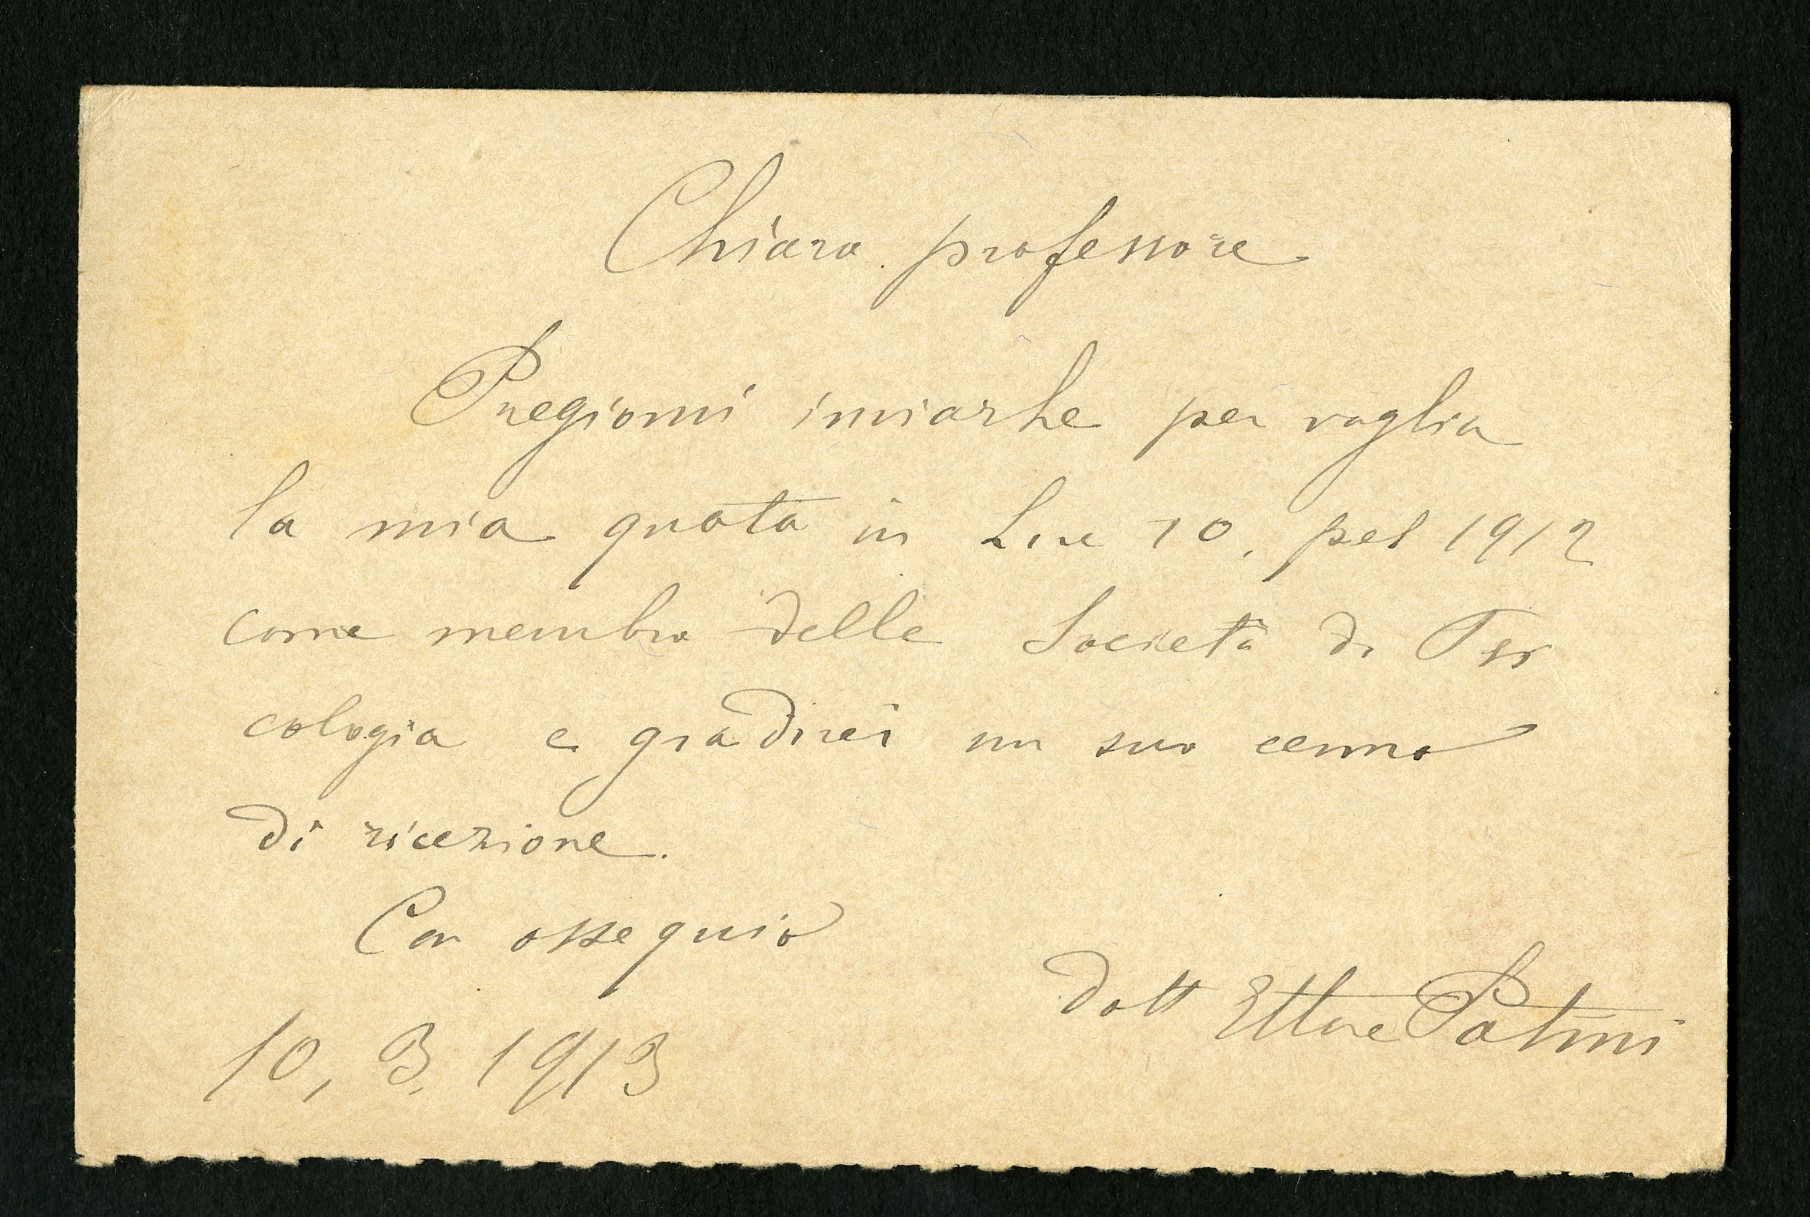 Chiaro. professore
Pregiomi inviarle per vaglia
la mia quota in Lire 10, pel 1912
come membro delle Società di Psi
cologia e gradirei un suo cenno
di ricezione.
Con ossequio
dott Ettore Patini
10, 3, 1913